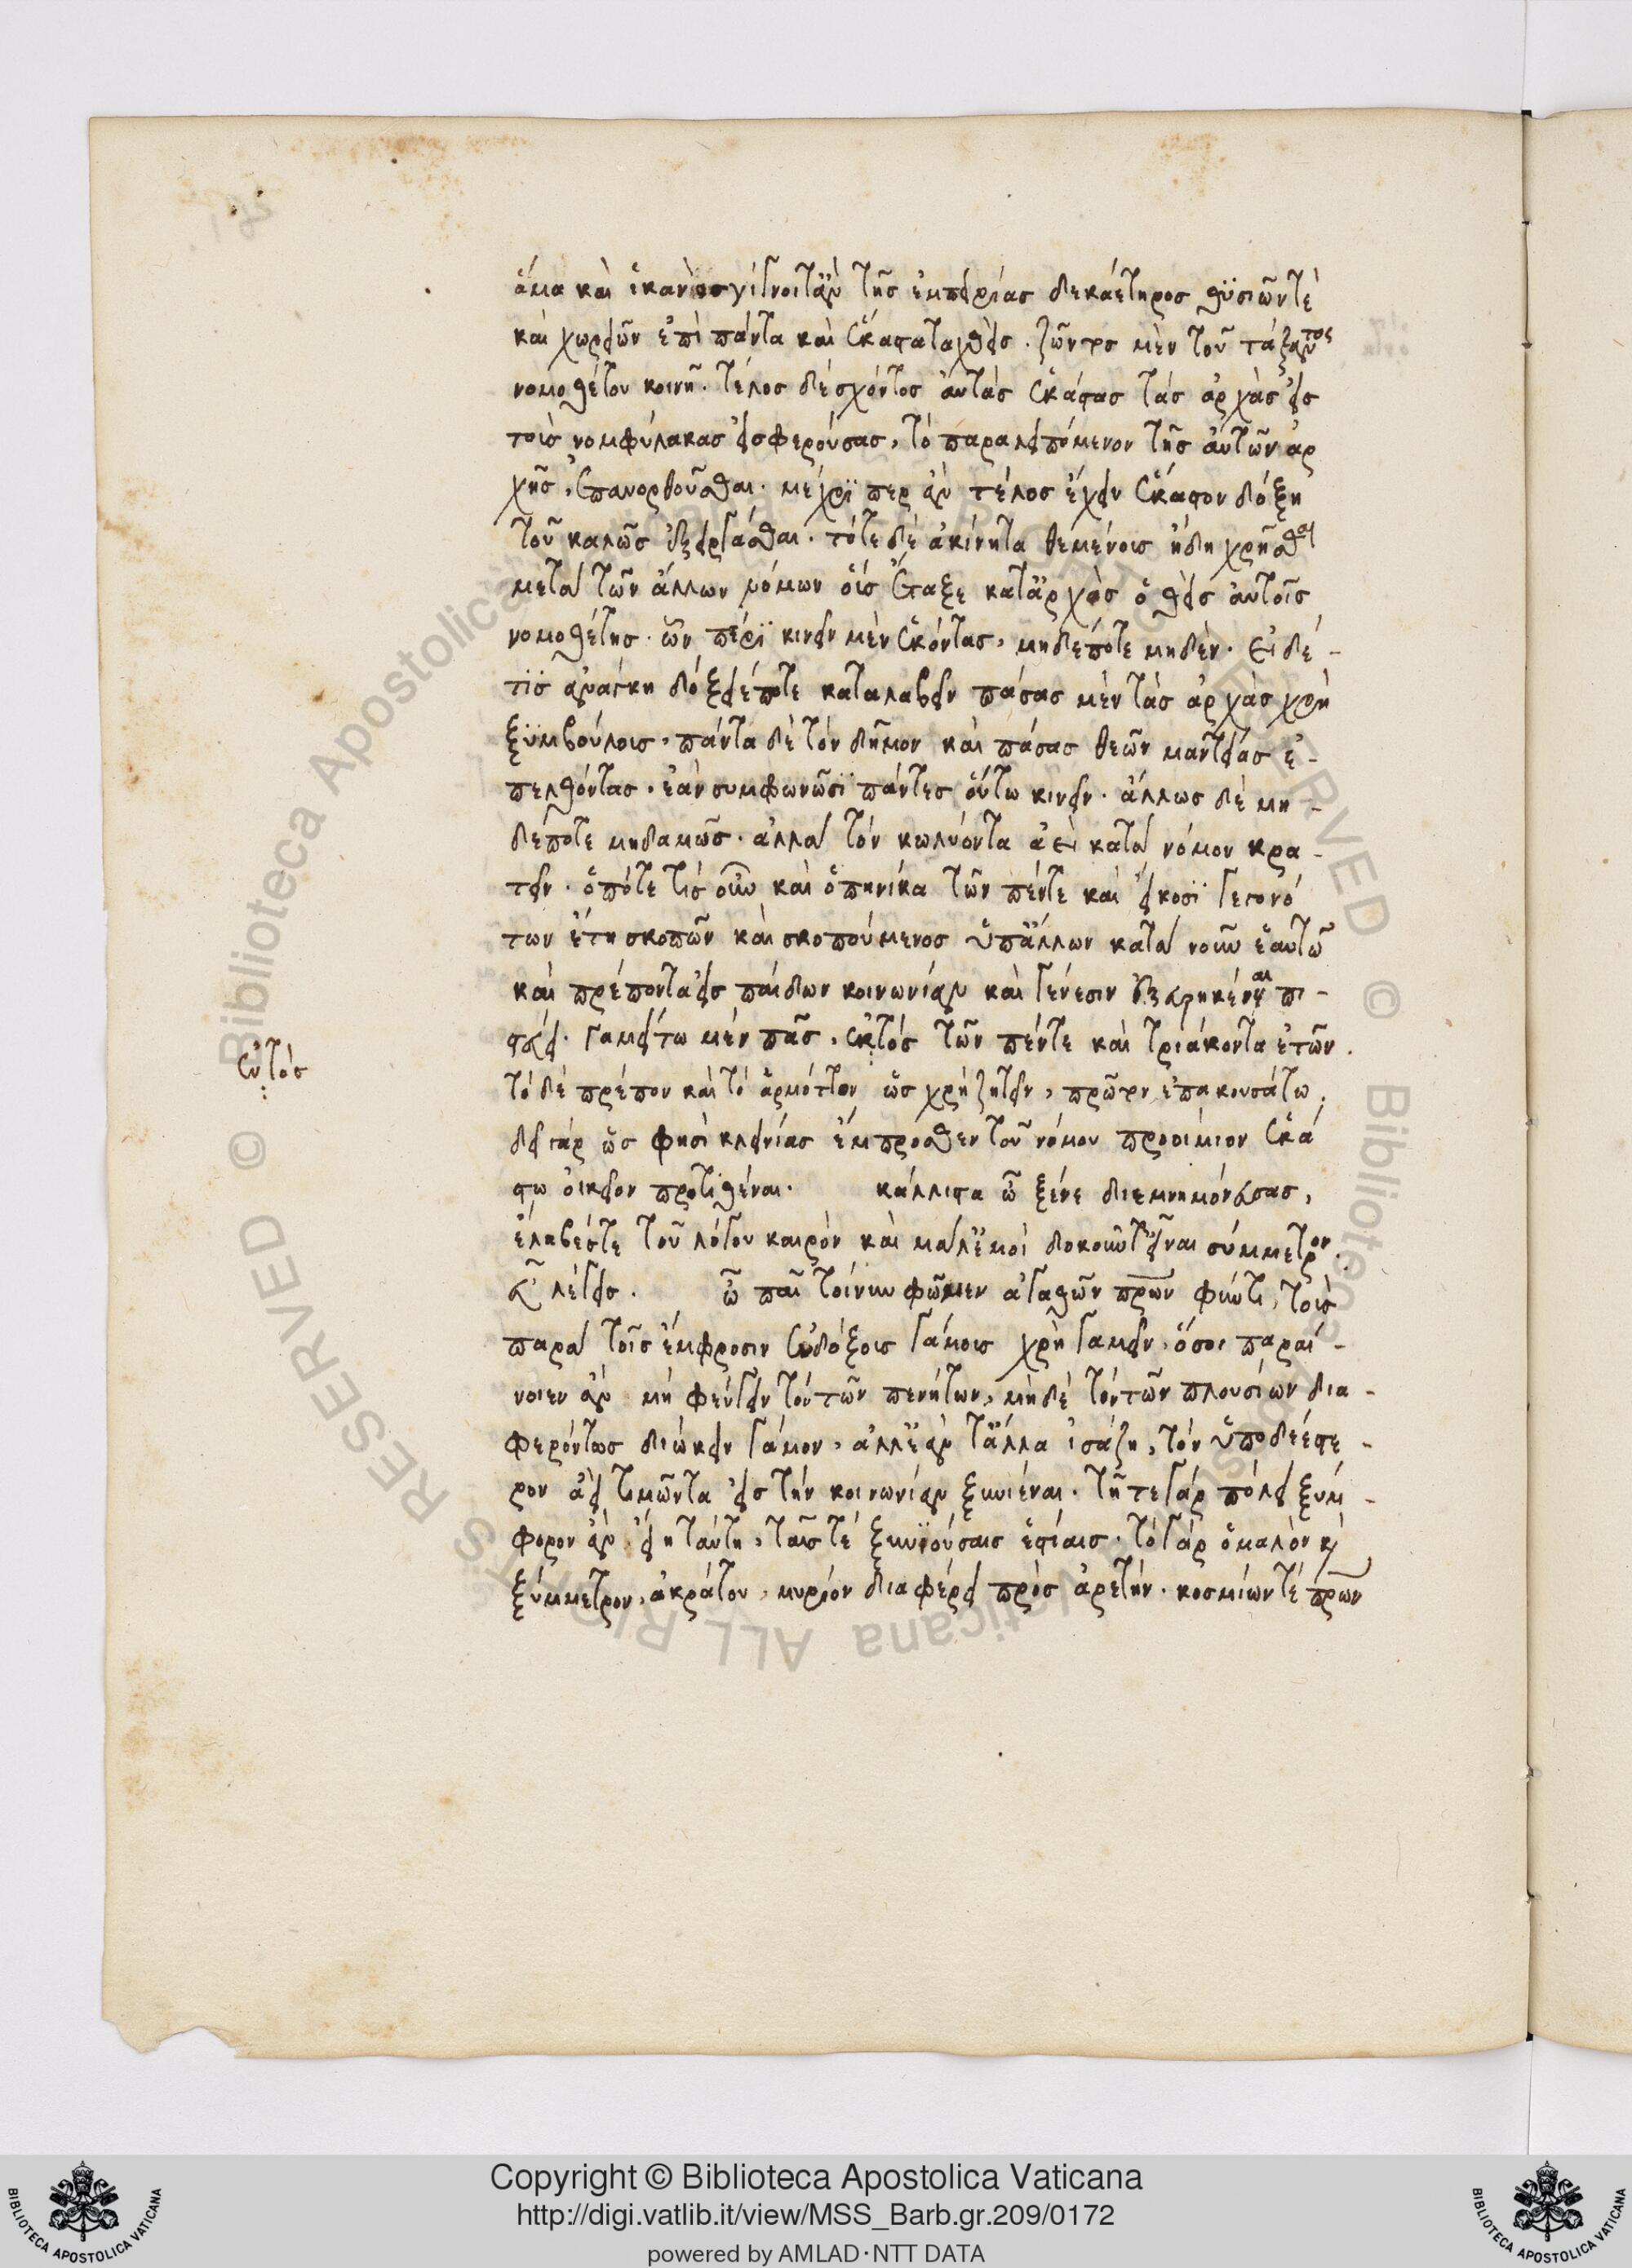 ἅμα καὶ ἱκανὸς γίγνοιτἂν τῆς ἐμπειρίας δεκαέτηρος θϋσιῶντὲ
καὶ χωρειῶν ἐπὶ πάντα καὶ ἕκασταταχθεὶς. ζῶντος μὲν τοῦ τάξαντος
νομοθέτου κοινῆ. τέλος δὲσχόντος ἀυτὰς ἑκάστας τὰς ἀρχὰς εἰς
τοὺς νομφύλακας εἰσφερούσας, τὸ παραλειπόμενον τῆς ἀυτῶν ἀρ
χῆς, ἐπανορθοῦσθαι. μέχρϊ περ ἂν τέλος ἔχειν ἕκαστον δόξη
τοῦ καλῶς ἐξειργάσθαι. τότε δὲ ἀκίνητα θεμένοις ἤδη χρῆσθαι
μετὰ τῶν ἄλλων νόμων οἷς ἔταξε κατἀρχὰς ὁ θεὶς ἀυτοῖς
νομοθέτης. ὧν πέρϊ κινεῖν μὲν ἑκόντας, μηδέποτε μηδὲν. εἰ δέ-
τϊς ἀνάγκη δόξειέποτε καταλαβεῖν πάσας μὲν τὰς ἀρχὰς χρὴ
ξϋμβούλοις, πάντα δὲ τὸν δῆμον καὶ πάσας θεῶν μαντείας ἐ-
πελθόντας. ἐὰν συμφωνῶσϊ πάντες οὕτω κινεῖν. ἄλλως δὲ μη-
δέποτε μηδαμῶς. ἀλλὰ τὸν κωλύοντα ἀεὶ κατὰ νόμον κρα-
τεῖν. ὁπότε τὶς οὖν καὶ ὁπηνίκα τῶν πέντε καὶ εἴκοσϊ γεγονό
των ἔτη σκοπῶν καὶ σκοπούμενος ὑπἄλλων κατὰ νοῦν ἑαυτῶ
καὶ πρέποντα εἰς παίδων κοινωνίαν καὶ γένεσιν ἐξευρηκέναι πι-
στεύει. γαμείτω μὲν πᾶς, ἐκτὸς τῶν πέντε καὶ τριάκοντα ἐτῶν.
ἐντὸς
τὸ δὲ πρέπον καὶ τὸ ἁρμόττον ὡς χρὴ ζητεῖν, πρῶτον ἐπακουσάτω.
δεῖ γὰρ ὥς φησὶ κλεινίας ἔμπροσθεν τοῦ νόμου προοίμιον ἑκά
στω ὀικεῖον προτιθέναι. κάλλιστα ὦ ξένε διεμνημόνευσας,
ἔλαβέστε τοῦ λόγου καιρὸν καὶ μάλἐμοὶ δοκοῦντ εἶναι σύμμετρον.
εὖ λέγεις. ὦ παῖ τοίνυν φῶμεν ἀγαθῶν πρων φύντι, τοὺς
παρὰ τοῖς ἔμφροσιν ἐυδόξοις γάμοις χρὴ γαμεῖν. ὅσοι παραί-
νοιεν ἂν μὴ φεύγειν τὸν τῶν πενήτων, μὴδὲ τὸν τῶν πλουσίων δια-
φερόντως διώκειν γάμον, ἀλλἐὰν τἄλλα ἰσάζη, τὸν ὑποδεέστε-
ρον ἀεὶ τιμῶντα εἰς τὴν κοινωνίαν ξυνιέναι. τῆ τε γὰρ πόλει ξύμ-
φορον ἂν εἴη ταύτη, ταῖς τὲ ξυνϊούσαις ἑστίαις. τὸ γὰρ ὁμαλὸν κὶ
ξύμμετρον, ἀκράτου, μυρίον διαφέρει πρὸς ἀρετὴν. κοσμίωντὲ πρων